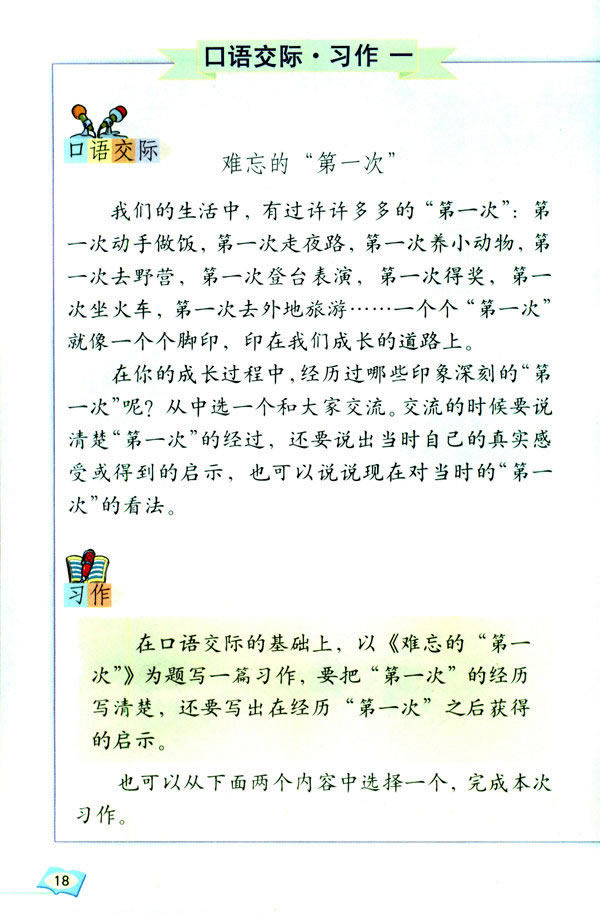 口语交际·习作 一
口语交际
难忘的“第一次”
我们的生活中，有过许许多多的“第一次”：第
一次动手做饭，第一次走夜路，第一次养小动物，第
一次去野营，第一次登台表演，第一次得奖，第一
次坐火车，第一次去外地旅游……一个个“第一次”
就像一个个脚印，印在我们成长的道路上。
在你的成长过程中，经历过哪些印象深刻的“第
一次”呢？从中选一个和大家交流。交流的时候要说
清楚“第一次”的经过，还要说出当时自己的真实感
受或得到的启示，也可以说说现在对当时的“第一
次”的看法。
习作
在口语交际的基础上，以《难忘的“第一
次”》为题写一篇习作，要把“第一次”的经历
写清楚，还要写出在经历“第一次”之后获得
的启示。
也可以从下面两个内容中选择一个，完成本次
习作。
18